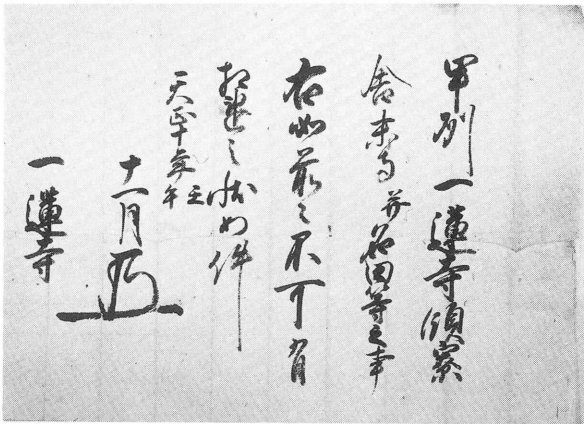 甲州一蓮寺領寮
舎末寺并名田等之事
右如前々不可有
相違之状如件
天正十年壬午
十一月
一蓮寺